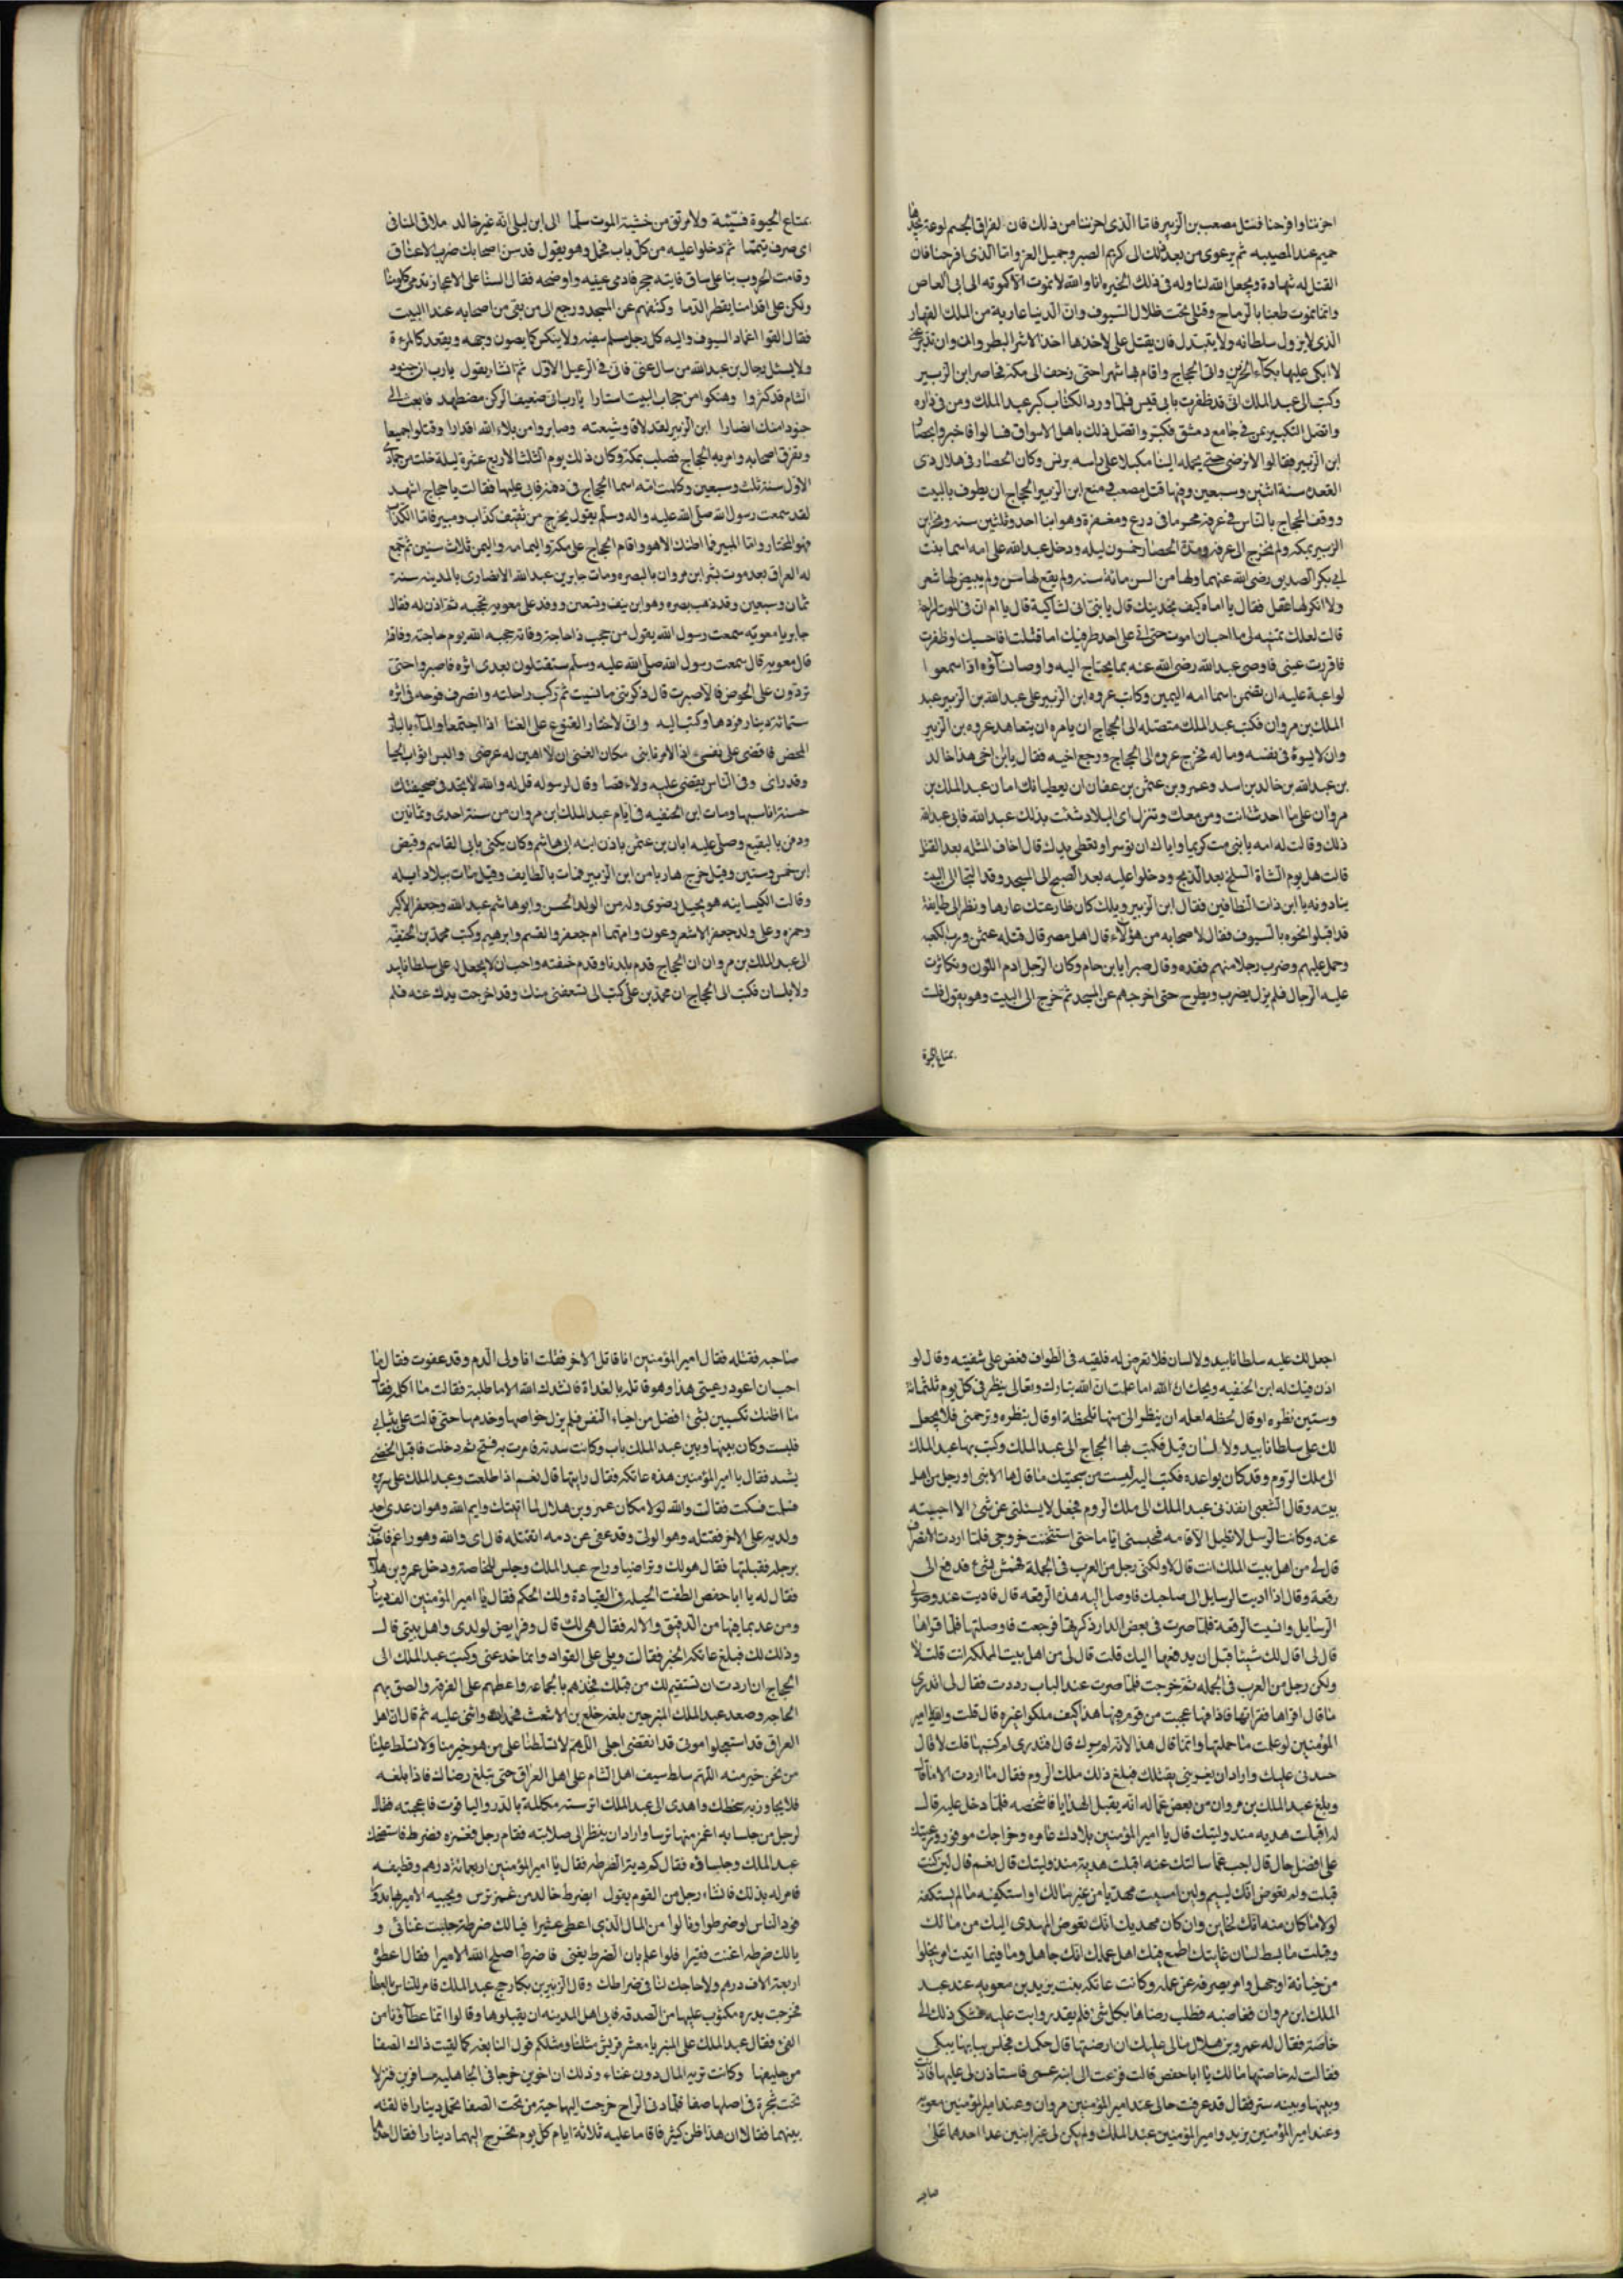 احزننا وافرحنا قتل مصعب بن الزبير فاما الذى احزننا من ذلك فان لفراق الحميم لوعة يجدها
حميم عند المصيبه ثم يرعوى من بعد ذلك الى كريم الصبر وجميل العزا واما الذى افرحنا فان
القتل له شهادة ويجعل الله لنا وله فى ذلك الخيره انا والله لا نموت الا كموته الى ابى العاص
وانما نموت طعنا بالرماح وقتلا تحت ظلال السيوف وان الدنيا عارية من الملك القهار
الذى لا يزول سلطانه ولا يتبدل فان يقتل على لاخذها اخذ الاشر البطر وان
لا ابكى عليها بكاء الحزين واتى الحجاج واقام بها شهرا حتى زحف الى مكة فحاصر ابن الزبير
وكتب الى عبد الملك انى قد ظفرت بابى قبيس فلما ورد الكتاب كبر عبد الملك ومن فى داره
واتصل التكبير بمن فى جامع دمشق فكبروا واتصل ذلك باهل الاسواق فسالوا فاخبروا بحصار
ابن الزبير فقالوا لا نرضى حتى يحمله الينا مكبلا على راسه برنس وكان الحصار فى هلال ذى
القعده سنة اثنين وسبعين وفيها قتل مصعب ومنع ابن الزبير الحجاج ان يطوف بالبيت
ووقف الحجاج بالناس فى عرفة محرما فى درع ومغفرة وهو ابنا احد وثلثين سنه ونحر ابن
الزبير بمكه ولم يخرج الى عرفه ومدة الحصار خمسون ليله ودخل عبد الله على امه اسما بنت
ابى بكر الصديق رضى الله عنهما ولها من السن مائة سنه ولم يقع لها سن ولم يبيض لها شعر
ولا انكر لها عقل فقال يا اماه كيف تجدينك قال يا بنى انى لشاكية قال يا ام ان فى الموت لراحة
قالت لعلك تمنيه لى ما احب ان اموت حتى اتى على احد طرفيك اما قتلت فاحتسبك او ظفرت
فاقررت عينى فاوصى عبد الله رضى الله عنه بما يحتاج اليه واوصا نساؤه اذا سمعوا
لواعية عليه ان يضممن اسما امه اليهن وكان عروه ابن الزبير على عبد الله بن الزبير عبد
الملك بن مروان فكتب عبد الملك متصله الى الحجاج ان يامره ان يتعاهد عروه بن الزبير
وان لا يسوءه فى نفسه وماله فخرج عروه الى الحجاج ورجع اخيه فقال يا ابن اخى هذا خالد
بن عبد الله بن خالد بن اسد وعمرو بن عثمن بن عفان ان يعطيانك امان عبد الملك بن
مروان على ما احدثت انت ومن معك وتنزل اى البلاد شئت بذلك عبد الله فابى عبد الله
ذلك وقالت له امه يا بنى مت كريما واياك ان توسر او تعطى بيدك قال اخاف المثله بعد القتل
قالت هل يوم الشاة السلخ بعد الذبح ودخلوا عليه بعد الصبح الى المسجد وقد التجا الى البيت
ينادونه يا ابن ذات النطاقين فقال ابن الزبير وتلك كان ظاهر عنك عارها ونظر الى طايفة
قد اقبلوا نحوه بالسيوف فقال لاصحابه من هؤلاء قال اهل مصر قال قتله عثمن ورب الكعبه
وحمل عليهم وضرب رجلا منهم فقده وقال صبرا يا ابن حام وكان الرجل ادم اللون وتكاثرت
عليه الرجال فلم يزل يضرب ويطرح حتى اخرجهم عن المسجد ثم خرج الى البيت وهو يقول فلست
بمتاع الحيوة
بمتاع الحيوة بسبة ولا مرتق من خشية الموت سلما الى ابن ليلى انه غير خالد ملاق المنايا
اى صرف تيمما ثم دخلوا عليه من كل باب فحمل وهو يقول قد سن اصحابك ضرب الاعناق
وقامت الحروب بنا على ساق فاتته حجر فادمى عينيه واوضحه فقال لسنا على الاعقاب تدمى كلومنا
ولكن على اقدامنا يقطر الدما وكشفهم عن المسجد ورجع الى من بقى من اصحابه عند البيت
فقال القوا اغماد السيوف واليه كل رجل منكم سيفه ولا ينكسر كما يصون وجهه ويقعد كالمرءة
ولا يسئل رجال بن عبد الله من سال عنى فانى فى الرعيل الاول ثم انشا يقول يا رب ان جنود
الشام قد كثروا وهتكوا من حجاب البيت استارا يا رب انى ضعيف الركن مضطهد فابعث الى
جنودا منك انصارا ابن الزبير لقد لاقا وشيعته وصابروا من بلاء الله اقدارا وقتلوا جميعا
وتفرق اصحابه وامر به الحجاج فصلب بمكة وكان ذلك يوم الثلثا لاربع عشرة ليلة خلت من جمادى
الاول سنة ثلث وسبعين وكلمت امه اسما الحجاج فى دفنه فابى عليها فقالت يا حجاج اشهد
لقد سمعت رسول الله صلى الله عليه واله وسلم يقول يخرج من ثقيف كذاب ومبير فاما الكذاب
فهو المختار واما المبير فما اظنك الا هو واقام الحجاج على مكة واليمامه واليمن ثلاث سنين ثم جمع
له العراق بعد موت بشر ابن مروان بالبصره ومات جابر بن عبد الله الانصارى بالمدينه سنة
ثمان وسبعين وقد ذهب بصره وهو ابن نيف وتسعين ووفد على معويه فحجبه ثم اذن له فقال
جابر يا معويه سمعت رسول الله يقول من حجب ذا حاجة وفاقة حجبه الله يوم حاجته وفاقته
قال معويه قال سمعت رسول الله صلى الله عليه وسلم ستقتلون بعدى اثره فاصبروا حتى
تردون على الحوض فالا صبرت قال ذكرتنى ما نسيت ثم ركب راحلته وانصرف فوجه فى اثره
ستمائة دينار فردها وكتب اليه وانى لاختار القنوع على الغنا اذا اجتمعا والماء بالبارد
المحض فاقضى على نفسى اذا الامر نابنى مكان الغنى ان لا اهين له عرضى والبس اثواب الحيا
وقد رانى وفى الناس يقضى عليه ولا اقضا وقال لرسوله قل له والله لا يجد فى صحيفتك
حسنة انا سببها ومات ابن الحنفيه فى ايام عبد الملك ابن مروان من سنة احدى وثمانين
ودفن بالبقيع وصلى عليه ابان بن عثمن باذن ابنه ابى هاشم وكان يكنى بابى القاسم وقبض
ابن خمس وستين وقيل خرج هاربا من ابن الزبير فمات بالطايف وقيل مات ببلاد ايله
وقالت الكيسانيه هو بجبل رضوى وله من الولد الحسن وابو هاشم عبد الله وجعفر الاكبر
وحمزه وعلى ولد جعفر الاشعر وعون وامهما ام جعفر والقسم وابرهيم وكتب محمد بن الحنفيه
الى عبد الملك بن مروان ان الحجاج قدم بلدنا وقدم خفته واحب ان لا يجعل له على سلطانا بيد
ولا بلسان فكتب الى الحجاج ان محمد بن على كتب الى يستعفنى منك وقد اخرجت يدك عنه فلم
اجعل لك عليه سلطانا بيد ولا لسان فلا تعرض له فلقيه فى الطواف فعض على شفتيه وقال لو
اذن فيك له ابن الحنفيه ويحك ان الله اما علمت ان الله تبارك وتعالى ينظر فى كل يوم ثلثمائة
وستين نظره او قال لحظه لعله ان ينظر الى منها لحظة او قال بنظره وترحمنى فلا يجعل
لك على سلطانا بيد ولا لسان قيل فكتب بها الحجاج الى عبد الملك وكتب بها عبد الملك
الى ملك الروم وقد كان يواعده فكتب اليه ليست من سجيتك ما قالها الا نبى او رجل من اهل
بيته وقال الشعبى انفذنى عبد الملك الى ملك الروم فجعل لا يسئلنى عن شئ الا اجبته
عنه وكانت الرسل لا تطيل الاقامه فحبسنى اياما حتى استحثثت خروجى فلما اردت الانصراف
قال لى من اهل بيت الملك انت قال لا ولكنى رجل من العرب فى الجملة فهمس بشئ فدفع الى
رقعة وقال اذا اديت الرسايل الى صاحبك فاوصل اليه هذه الرقعه قال فاديت عند وصولى
الرسايل وانسيت الرقعة فلما صرت فى بعض الدار ذكرتها فرجعت فاوصلتها فلما قراها
قال لى اقال لك شيئا قبل ان يدفعها اليك قلت قال لى من اهل بيت الملكه انت قلت لا
ولكن رجل من العرب فى الجمله ثم خرجت فلما صرت عند الباب رددت فقال لى اتدرى
ما قال اقراها فقراتها فاذا فيها عجبت من قوم فيهم هذا كيف ملكوا غيره قال قلت والله يا امير
المؤمنين لو علمت ما حملتها وانما قال هذا لانه لم يرك قال افتدرى لم كتبها قلت لا قال
حسدنى عليك واراد ان يغرينى بقتلك فبلغ ذلك ملك الروم فقال ما اردت الا ما قال
وبلغ عبد الملك بن مروان من بعض عماله انه يقبل الهدايا فاشخصه فلما دخل عليه قال
له اقبلت هديه منذ وليتك قال يا امير المؤمنين بلادك عامره وخراجات موفور ورعيتك
على افضل حال قال اجب عما سالتك عنه اقبلت هدية منذ وليتك قال نعم قال لئن كنت
قبلت ولم تعوض انك لئيم ولئن اسيت مهديا من غير مالك او استكفيته ما لم يستكفه
لولا ما كان منه انك لخاين وان كان مهديك انك تعوض المهدى اليك من مالك
وقبلت ما بسط لسان عايبك اطمع فيك اهل عملك انك جاهل وما فيما اتيت لم يخلوا
من خيانة او جهل وامر بصرفه عن عمله وكانت عاتكه بنت يزيد بن معويه عند عبد
الملك ابن مروان فغاضبته فطلب رضاها بكل شئ فلم يقدر وابت عليه فشكى ذلك الى
خاصته فقال له عمرو بن هلال مالى عليك ان ارضيتها قال حكمك فجلس ببابها يبكى
فقالت له خاصتها مالك يا ابا حفص قالت فزعت الى ابنه عمى فاستاذن لى عليها فاذنت
وبينها وبينه ستر فقال قد عرفت حالى عند امير المؤمنين مروان وعند امير المؤمنين معويه
وعند امير المؤمنين يزيد وامير المؤمنين عبد الملك ولم يكن لى غير ابنين عدا احدهما على
صاحبه
صاحبه فقتله فقال امير المؤمنين انا قاتل الاخر فقلت انا ولى الدم وقد عفوت فقال ما
احب ان اعود رعيتى هذا وهو قاتله بالغداة فانشدك الله الا ما طلبته فقالت ما اكلمه فقال
ما اظنك تكسبين بشئ افضل من احياء النفس فلم يزل خواصها وخدمها حتى قالت على بثيابى
فلبست وكان بينها وبين عبد الملك باب وكانت سدته فامرت به ففتح ثم دخلت فاقبل الخصى
يشد فقال يا امير المؤمنين هذه عاتكه فقال رايتها قال نعم اذا طلعت وعبد الملك على سريره
فسلمت فسكت فقالت والله لولا مكان عمرو بن هلال لما اتيتك وايم الله وهو ان عدى احد
ولديه على الاخر فقتله وهو الولى وقد عفى عن دمه اتقتله قال اى والله وهو راغم فاخذت
برجله فقبلتها فقال هو لك وتراضيا وراح عبد الملك وجلس للخاصة ودخل عمرو بن هلال
فقال له يا ابا حفص الطفت الحيله فى القياده ولك الحكم فقال يا امير المؤمنين الف دينار
ومزرعه بما فيها من الرقيق والاله فقال هى لك قال وفرايض لولدى واهل بيتى قال
وذلك لك فبلغ عاتكه الخبر فقالت ويلى على القواد وانما خدعنى وكتب عبد الملك الى
الحجاج ان اردت ان تستقيم لك من قبلك فخذهم بالجماعه واعطهم على الفرقه والصق بهم
الحاجه وصعد عبد الملك المنبر حين بلغه خلع بن الاشعث فحمد الله واثنى عليه ثم قال ان اهل
العراق قد استعجلوا موتى قد انقضى اجلى اللهم لا تسلطنا على من هو خير منا ولا تسلط علينا
من نحن خير منه اللهم سلط سيف اهل الشام على اهل العراق حتى تبلغ رضاك فاذا بلغه
فلا يجاوز به سخطك واهدى الى عبد الملك اترسة مكللة بالدر والياقوت فاعجبته فقال
لرجل من جلسايه اغمز منها ترسا واراد ان ينظر الى صلابته فقام رجل فغمزه فضرط فاستضحك
عبد الملك وجلساؤه فقال كم دية الضرطه فقال يا امير المؤمنين اربعمائة درهم وقطيفه
فامر له بذلك فانشا رجل من القوم يقول ايضرط خالد من غمز ترس ويحبيه الامير بها بدورا
فود الناس لو ضرطوا ونالوا من المال الذى اعطى عشيرا فيالك ضرطة جلبت غنائى و
يالك ضرطه اغنت فقيرا فلوا علم بان الضرط يغنى فاضرط اصلح الله الاميرا فقال اعطوه
اربعة الاف درهم ولا حاجك لنا فى ضراطك وقال الزبير بن بكار حج عبد الملك فامر للناس بالعطا
فخرجت بدره مكتوب عليها من الصدقه فابى اهل المدينه ان يقبلوها وقالوا انما عطاؤنا من
الفئ فقال عبد الملك على المنبر يا معشر قريش مثلنا ومثلكم قول النابغه كما لقيت ذات الصفا
من حليفها وكانت تريه المال دون عناء وذلك ان اخوين خرجا فى الجاهليه مسافرين فنزلا
تحت شجرة فى اصلها صفا فلما دنا الراح خرجت اليها حية من تحت الصفا تحمل دينارا فالقته
بينهما فقالا ان هذا ظن كثير فاقاما عليه ثلاثة ايام كل يوم تخرج اليهما دينارا فقال احدهما